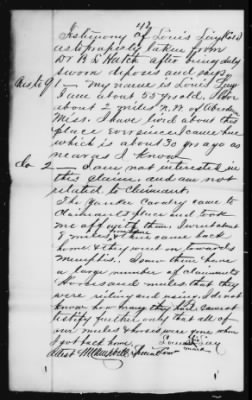 42
Testimony of Louis Ivy (Col'd)
as to property taken from
Dr A. L. Hatch after being duly
sworn deposes and says,
Ans to 91 — my name is Louis Ivy
I am about 55 yrs old. I live
about 2 miles N. W. of
Miss. I have lived about this
place ever since I came here
which is about 30 yrs ago as
near as I know
do 2 — I am not interested in
this claim and am not
related to Claimant.
The Yankee Cavalry came to
Claimants place and took
me off with them. I went about
8 miles, & then came back
home & they went on towards
Memphis. I saw them have
a large number of claimants
horses and mules that they
were riding and using. I do not
know how many they had. Cannot
testify further only that all of
our mules & horses were gone when
I got back home. Louis Ivy
mark
Attest